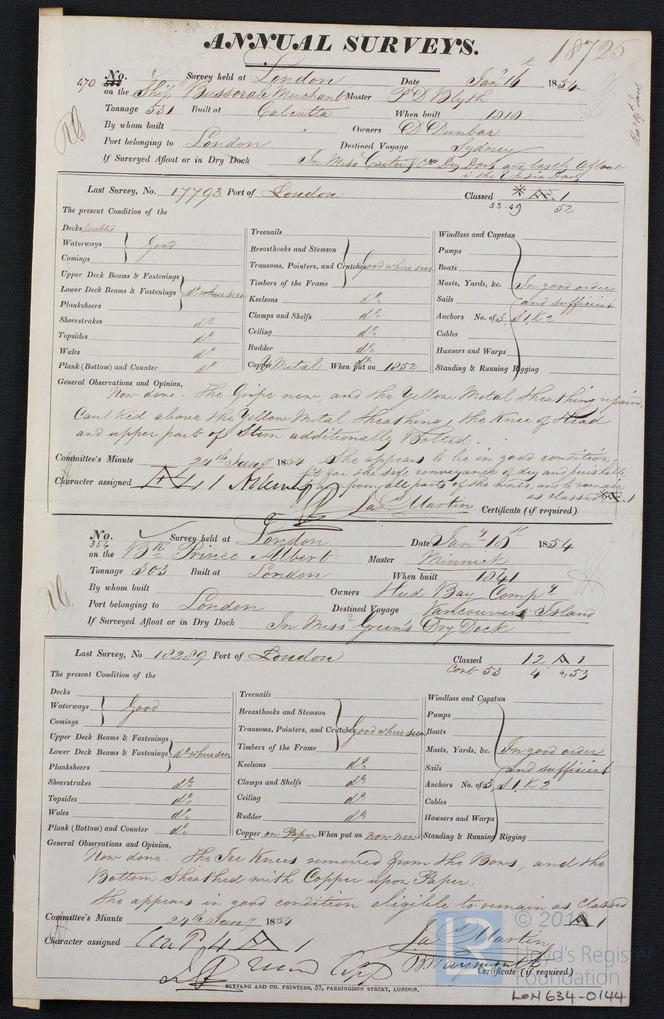 ANNUAL SURVEYS.
18725
470 No. Survey held at London Date Jany 16 1854
on the Ship Bussorah Merchant Master P D Blyth
Tonnage 531 Built at Calcutta When built 1818
By whom built Owners D Dunbar
Port belonging to London Destined Voyage Sydney
If Surveyed Afloat or in Dry Dock In Messrs & Co Dry Dock and lastly Afloat
in the India Dock
Last Survey, No. 17793 Port of London Classed Æ 1
52
The present Condition of the
Decks doubled
Waterways
Comings
Good
Upper Deck Beams & Fastenings
Lower Deck Beams & Fastenings
Planksheers
do where seen
Sheerstrakes do
Topsides do
Wales do
Plank (Bottom) and Counter do
Treenails
Breasthooks and Stemson
Transoms, Pointers, and Crutches
Timbers of the Frame
good where seen
Keelsons do
Clamps and Shelfs do
Ceiling do
Rudder do
Copper Y Metal When put on 1852
Windlass and Capstan
Pumps
Boats
Masts, Yards, &c.
Sails
In good order
and sufficient
Anchors No. of 3. S1. K2
Cables
Hawsers and Warps
Standing & Running Rigging
General Observations and Opinion,
Now done. The Gripe new, and the Yellow Metal Sheathing repaired.
Caulked above the Yellow Metal Sheathing, the Knee of Head
and upper part of Stem additionally Bolted.
She appears to be in good condition,
fit for the safe conveyance of dry and perishable
from all parts of the world, and to remain
as classed Æ 1
Committee's Minute 24th Jany 1854
Character assigned
Jas Martin
Certificate (if required)
No. 354 Survey held at London Date Jany 18th 1854
on the Bk Prince Albert Master
Tonnage 303 Built at London When built 1841
By whom built Owners Hud Bay Compy
Port belonging to London Destined Voyage Vancouvers Island
If Surveyed Afloat or in Dry Dock In Messrs Green's Dry Dock
Last Survey, No 18289 Port of London Classed 12 A 1
Cont 53 4
The present Condition of the
Decks
Waterways
Comings
Good
Upper Deck Beams & Fastenings
Lower Deck Beams & Fastenings
Planksheers
do where seen
Sheerstrakes do
Topsides do
Wales do
Plank (Bottom) and Counter do
Treenails
Breasthooks and Stemson
Transoms, Pointers, and Crutches
Timbers of the Frame
Good where seen
Keelsons do
Clamps and Shelfs do
Ceiling do
Rudder do
Copper on Paper When put on now new
Windlass and Capstan
Pumps
Boats
Masts, Yards, &c.
Sails
In good order
and sufficient
Anchors No. of 3. S1. K2
Cables
Hawsers and Warps
Standing & Running Rigging
General Observations and Opinion,
Now done. The Ice Knees removed from the Bows, and the
Bottom Sheathed with Copper upon Paper.
She appears in good condition eligible to remain as Classed
A 1
Committee's Minute 24th Jany 1854
Character assigned
Jas Martin
B Waymouth
Certificate (if required)
SEYFANG AND CO. PRINTERS, 57, FARRINGDON STREET, LONDON.
Lloyd's Register
Foundation
LON634-0144